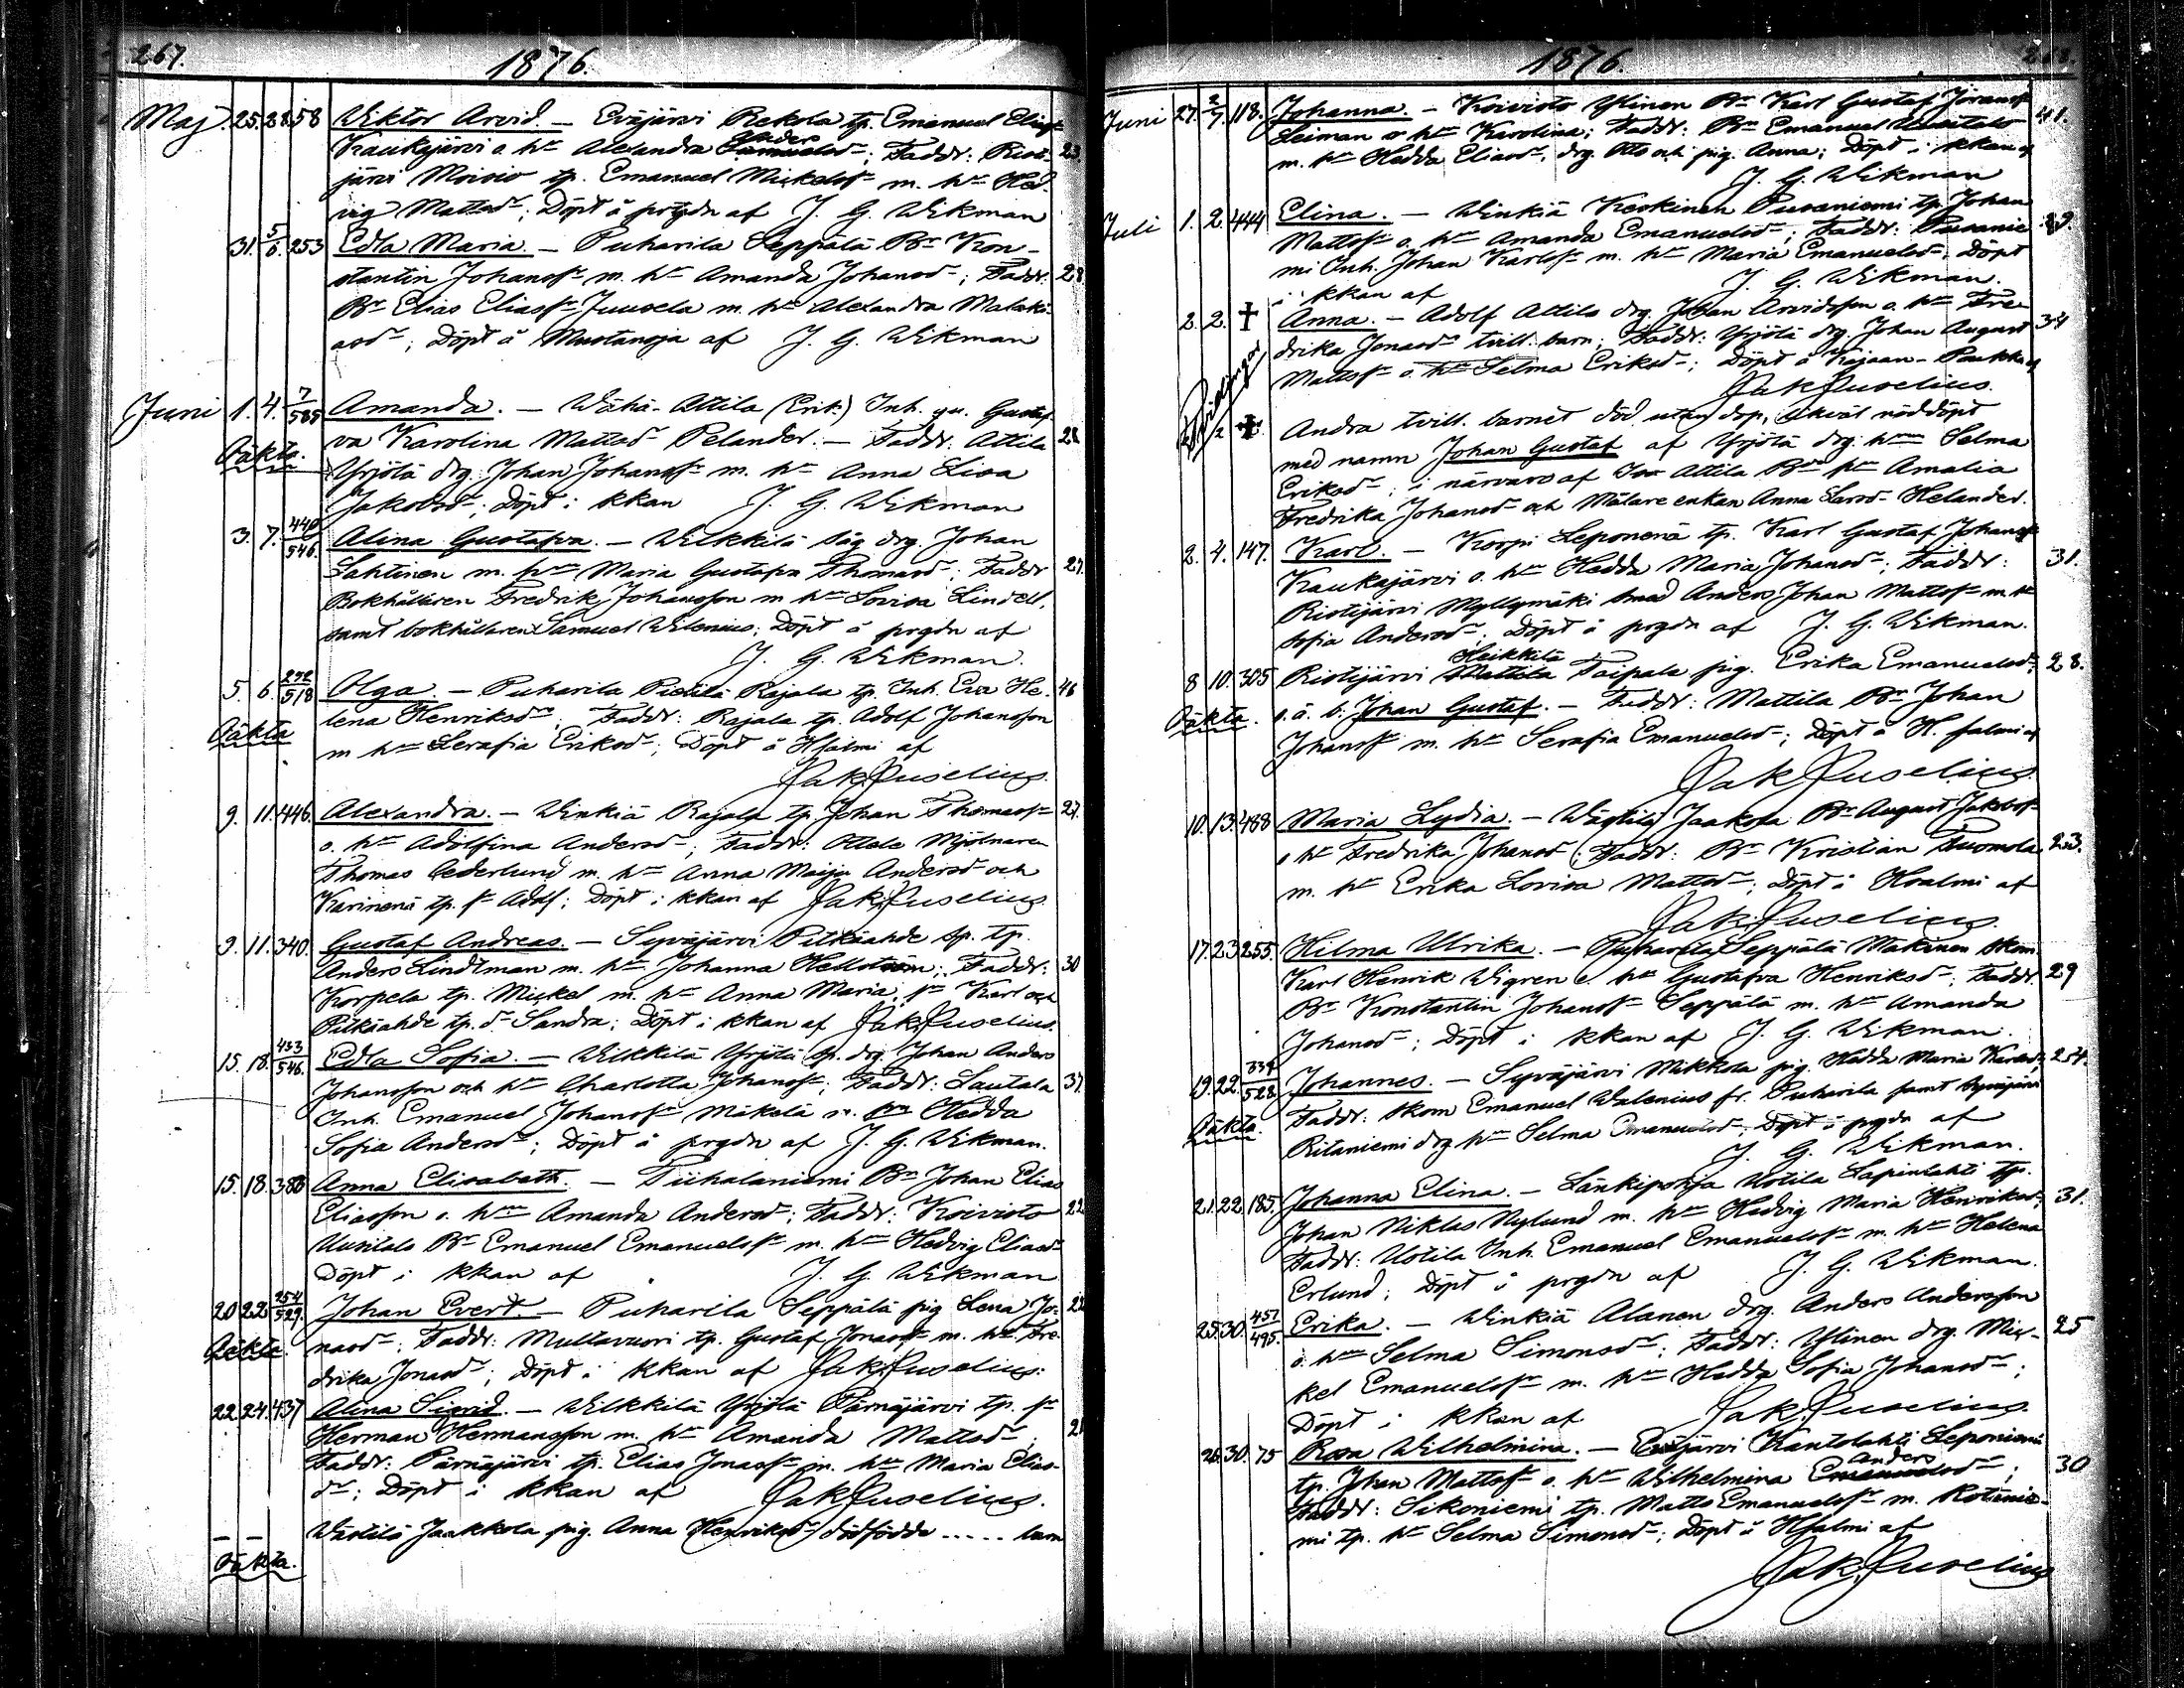 267.
1876.
Maj. 25. 28. 58 Wiktor Arvid. — Eväjärvi Rekola tp. Emanuel Eliass
Kaukajärvi o. hu Alexandra Anders Samuelsdr; Faddr: Risti- 23.
järvi Moivio tp. Emanuel Mickelsn m. hu Hed-
vig Mattsdr; Döpt å prgdn af J. G. Wikman
31. 5/6. 253 Edla Maria. — Puharila Seppälä Br Kon-
stantin Johanssn m. hu Amanda Johansdr; Faddr: 28
Br Elias Eliassn Juusela m. hu Alexandra Malaki-
asdr; Döpt å Mustanoja af J. G. Wikman
Juni 1. 4. 7/585 Amanda. — Wähä-Attila (Erik:) Inh. qv. Gusta-
Oäkta. va Karolina Mattsdr Pelander. — Faddr: Attila 28
Yrjölä drg. Johan Johanssn m. hu Anna Lisa
Jakobsdr; Döpt i kkan J. G. Wikman
3. 7. 440/546. Alina Gustafva. — Wilkkilä såg drg. Johan
Lahtinen m. hu Maria Gustafva Thomasdr; Faddr 27.
Bokhållaren Fredrik Johansson m hu Lovisa Lindell,
samt bokhållaren Samuel Wilenius; Döpt å prgdn af
J. G. Wikman.
5. 6. 292/518 Olga. — Puharila Pietilä Rajala tp. Inh. Eva He- 46
Oäkta lena Henriksdr; Faddr: Rajala tp. Adolf Johansson
m hu Serafia Eriksdr; Döpt å Hjalmi af
Jak. Juselius.
9. 11. 446. Alexandra. — Winkiä Rajala tp. Johan Thomassn 27.
o. hu Adolfina Andersdr; Faddr: Attila Mjölnaren
Thomas Cederlund m. hu Anna Maija Andersdr och
Karinenä tp. sn Adolf; Döpt i kkan af Jak. Juselius.
9. 11. 340. Gustaf Andreas. — Syväjärvi Pitkäahde sp. tp.
Anders Lindman m. hu Johanna Hellström; Faddr: 30
Korpela tp. Mickel m. hu Anna Maria, sn Karl och
Pitkäahde tp. dr Sandra; Döpt i kkan af Jak. Juselius.
15. 18. 433/546. Edla Sofia. — Wilkkilä Yrjölä sp. drg. Johan Anders
Johansson och hu Charlotta Johanssn; Faddr: Lautala 37.
Inh. Emanuel Johanssn Mäkelä m. hu Hedda
Sofia Andersdr; Döpt å prgdn af J. G. Wikman.
15. 18. 388 Anna Elisabeth. — Tiihalaniemi Br Johan Elias
Eliasson o. hu Amanda Andersdr; Faddr: Koivisto 22
Uusitalo Br Emanuel Emanuelssn m. hu Hedvig Eliasdr
Döpt i kkan af J. G. Wikman
20 22 254/529. Johan Evert. — Puharila Seppälä pig Lena Jo- 22
Oäkta. nasdr; Faddr: Multavuori tp. Gustaf Jonassn m. hu Fre-
drika Jonasdr; Döpt i kkan af Jak. Juselius.
22 24. 437 Alina Sigrid. — Wilkkilä Yrjölä Pärnäjärvi tp. sn
Herman Hermansson m. hu Amanda Mattsdr; 21
Faddr: Pärnäjärvi tp. Elias Jonassn m. hu Maria Elias-
dr; Döpt i kkan af Jak. Juselius.
— — Wästilä Jaakkola pig. Anna Henriksdr dödfödda ..... barn
Oäkta.
1876.
268.
Juni 27. 2/7. 118. Johanna. — Koivisto Ylinen Br Karl Gustaf Göranssn 41.
Leiman o hu Karolina; Faddr: Br Emanuel Uusitalo
m. hu Hedda Eliasdr, drg. Otto och pig. Anna; Döpt i kkan af
J. G. Wikman
Juli 1. 2. 444 Elina. — Winkiä Keskinen Puvaniemi tp. Johan
Mattssn o. hu Amanda Emanuelsdr; Faddr: Puvanie- 29.
mi Inh. Johan Karlssn m. hu Maria Emanuelsdr; Döpt
i kkan af J. G. Wikman.
2. 2. † Anna. — Adolf Attila drg. Johan Arvidsson o. hu Fre- 34
drika Jonasdr tvill. barn; Faddr: Yrjölä drg. Johan August
Mattssn o. hu Selma Eriksdr; Döpt å Kajaan-Paukku af
Jak Juselius.
Tvillingar
Andra tvill. barnet död utan dop, likväl nöddöpt
med namn Johan Gustaf af Yrjölä drg. hu Selma
Eriksdr; i närvaro af Iso Attila Br hu Amalia
Fredrika Johansdr och Målare enkan Anna Larsdr Helander.
2. 4. 147. Karl. — Korpi Leponenä tp. Karl Gustaf Johanssn
Kaukajärvi o. hu Hedda Maria Johansdr; Faddr: 31.
Ristijärvi Myllymäki smed Anders Johan Mattssn m. hu
Sofia Andersdr. Döpt å prgdn af J. G. Wikman.
8 10. 305 Ristijärvi Heikkilä Mattila Taipale pig. Erika Emanuelsdr; 28.
Oäkta. o. ä. b: Johan Gustaf. — Faddr: Mattila Br Johan
Johanssn m. hu Serafia Emanuelsdr; Döpt å H. salmi af
Jak. Juselius.
10. 13. 488 Maria Lydia. — Wästilä Jaakola Br August Jakobssn
o hu Fredrika Johansdr; Faddr: Br Kristian Tuomola 23.
m. hu Erika Lovisa Mattsdr; Döpt å Hsalmi af
Jak. Juselius.
17. 23 255. Hilma Ulrika. — Puharila Seppälä Mäkinen skom.
Karl Henrik Wigren o. hu Gustafva Henriksdr; Faddr. 29
Br Konstantin Johanssn Seppälä m. hu Amanda
Johansdr; Döpt i kkan af J. G. Wikman.
19. 22. 334/528. Johannes. — Syväjärvi Mikkola pig. Hedda Maria Karlsdr; 24.
Oäkta. Faddr: skom Emanuel Walenius fr. Puharila samt Syväjärvi
Ritaniemi drg. hu Selma Emanuelsdr; Döpt å prgdn af
J. G. Wikman.
21. 22 185. Johanna Elina. — Länkipohja Uotila Lapinlahti tp.
Johan Niklas Nylund m. hu Hedvig Maria Henriksdr; 31.
Faddr: Uotila Inh. Emanuel Emanuelssn m. hu Helena
Erlund; Döpt å prgdn af J. G. Wikman.
25. 30. 457/495. Erika. — Winkiä Alanen drg. Anders Andersson
o. hu Selma Simonsdr; Faddr: Ylinen drg. Mic- 25
kel Emanuelssn m. hu Hedda Sofia Johansdr;
Döpt i kkan af Jak. Juselius.
26. 30. 75 Rosa Wilhelmina. — Eväjärvi Kantolahti Leponiemi
tp. Johan Mattssn o. hu Wilhelmina Anders Emanuelsdr; 30
Faddr: Sikoniemi tp. Matts Emanuelssn m. Kotanie-
mi tp. hu Selma Simonsdr; Döpt å Hsalmi af
Jak. Juselius